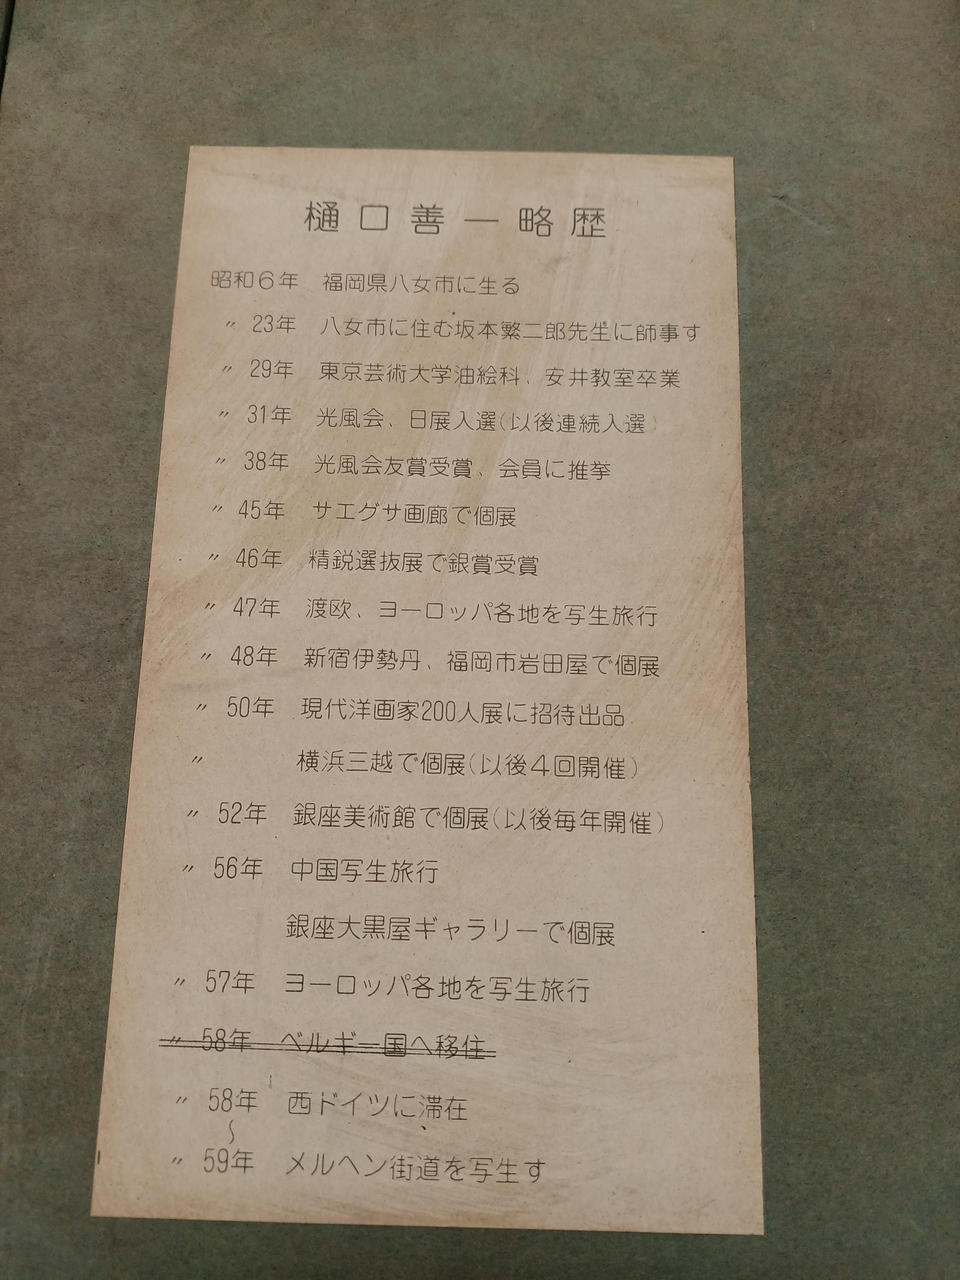 樋口善一略歴
昭和6年 福岡県八女市に生る
〃 23年 八女市に住む坂本繁二郎先生に師事す
〃 29年 東京芸術大学油絵科、安井教室卒業
〃 31年 光風会、日展入選(以後連続入選)
〃 38年 光風会友賞受賞、会員に推挙
〃 45年 サエグサ画廊で個展
〃 46年 精鋭選抜展で銀賞受賞
〃 47年 渡欧、ヨーロッパ各地を写生旅行
〃 48年 新宿伊勢丹、福岡市岩田屋で個展
〃 50年 現代洋画家200人展に招待出品
〃 横浜三越で個展(以後4回開催)
〃 52年 銀座美術館で個展(以後毎年開催)
〃 56年 中国写生旅行
銀座大黒屋ギャラリーで個展
〃 57年 ヨーロッパ各地を写生旅行
〃 58年 ベルギー国へ移住
〃 58年 西ドイツに滞在
〜
〃 59年 メルヘン街道を写生す